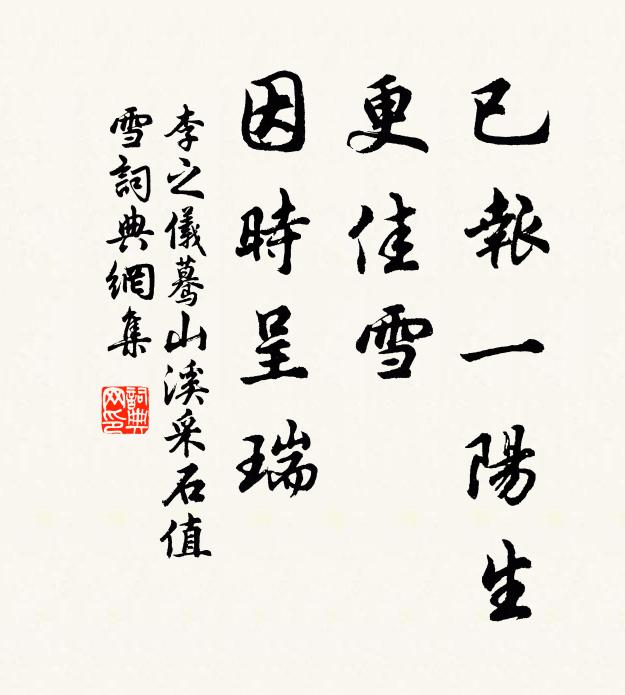 已報一陽生
更佳雪
因時呈瑞
李之儀蓦山溪采石值
雪詞典網集
詞典
网印